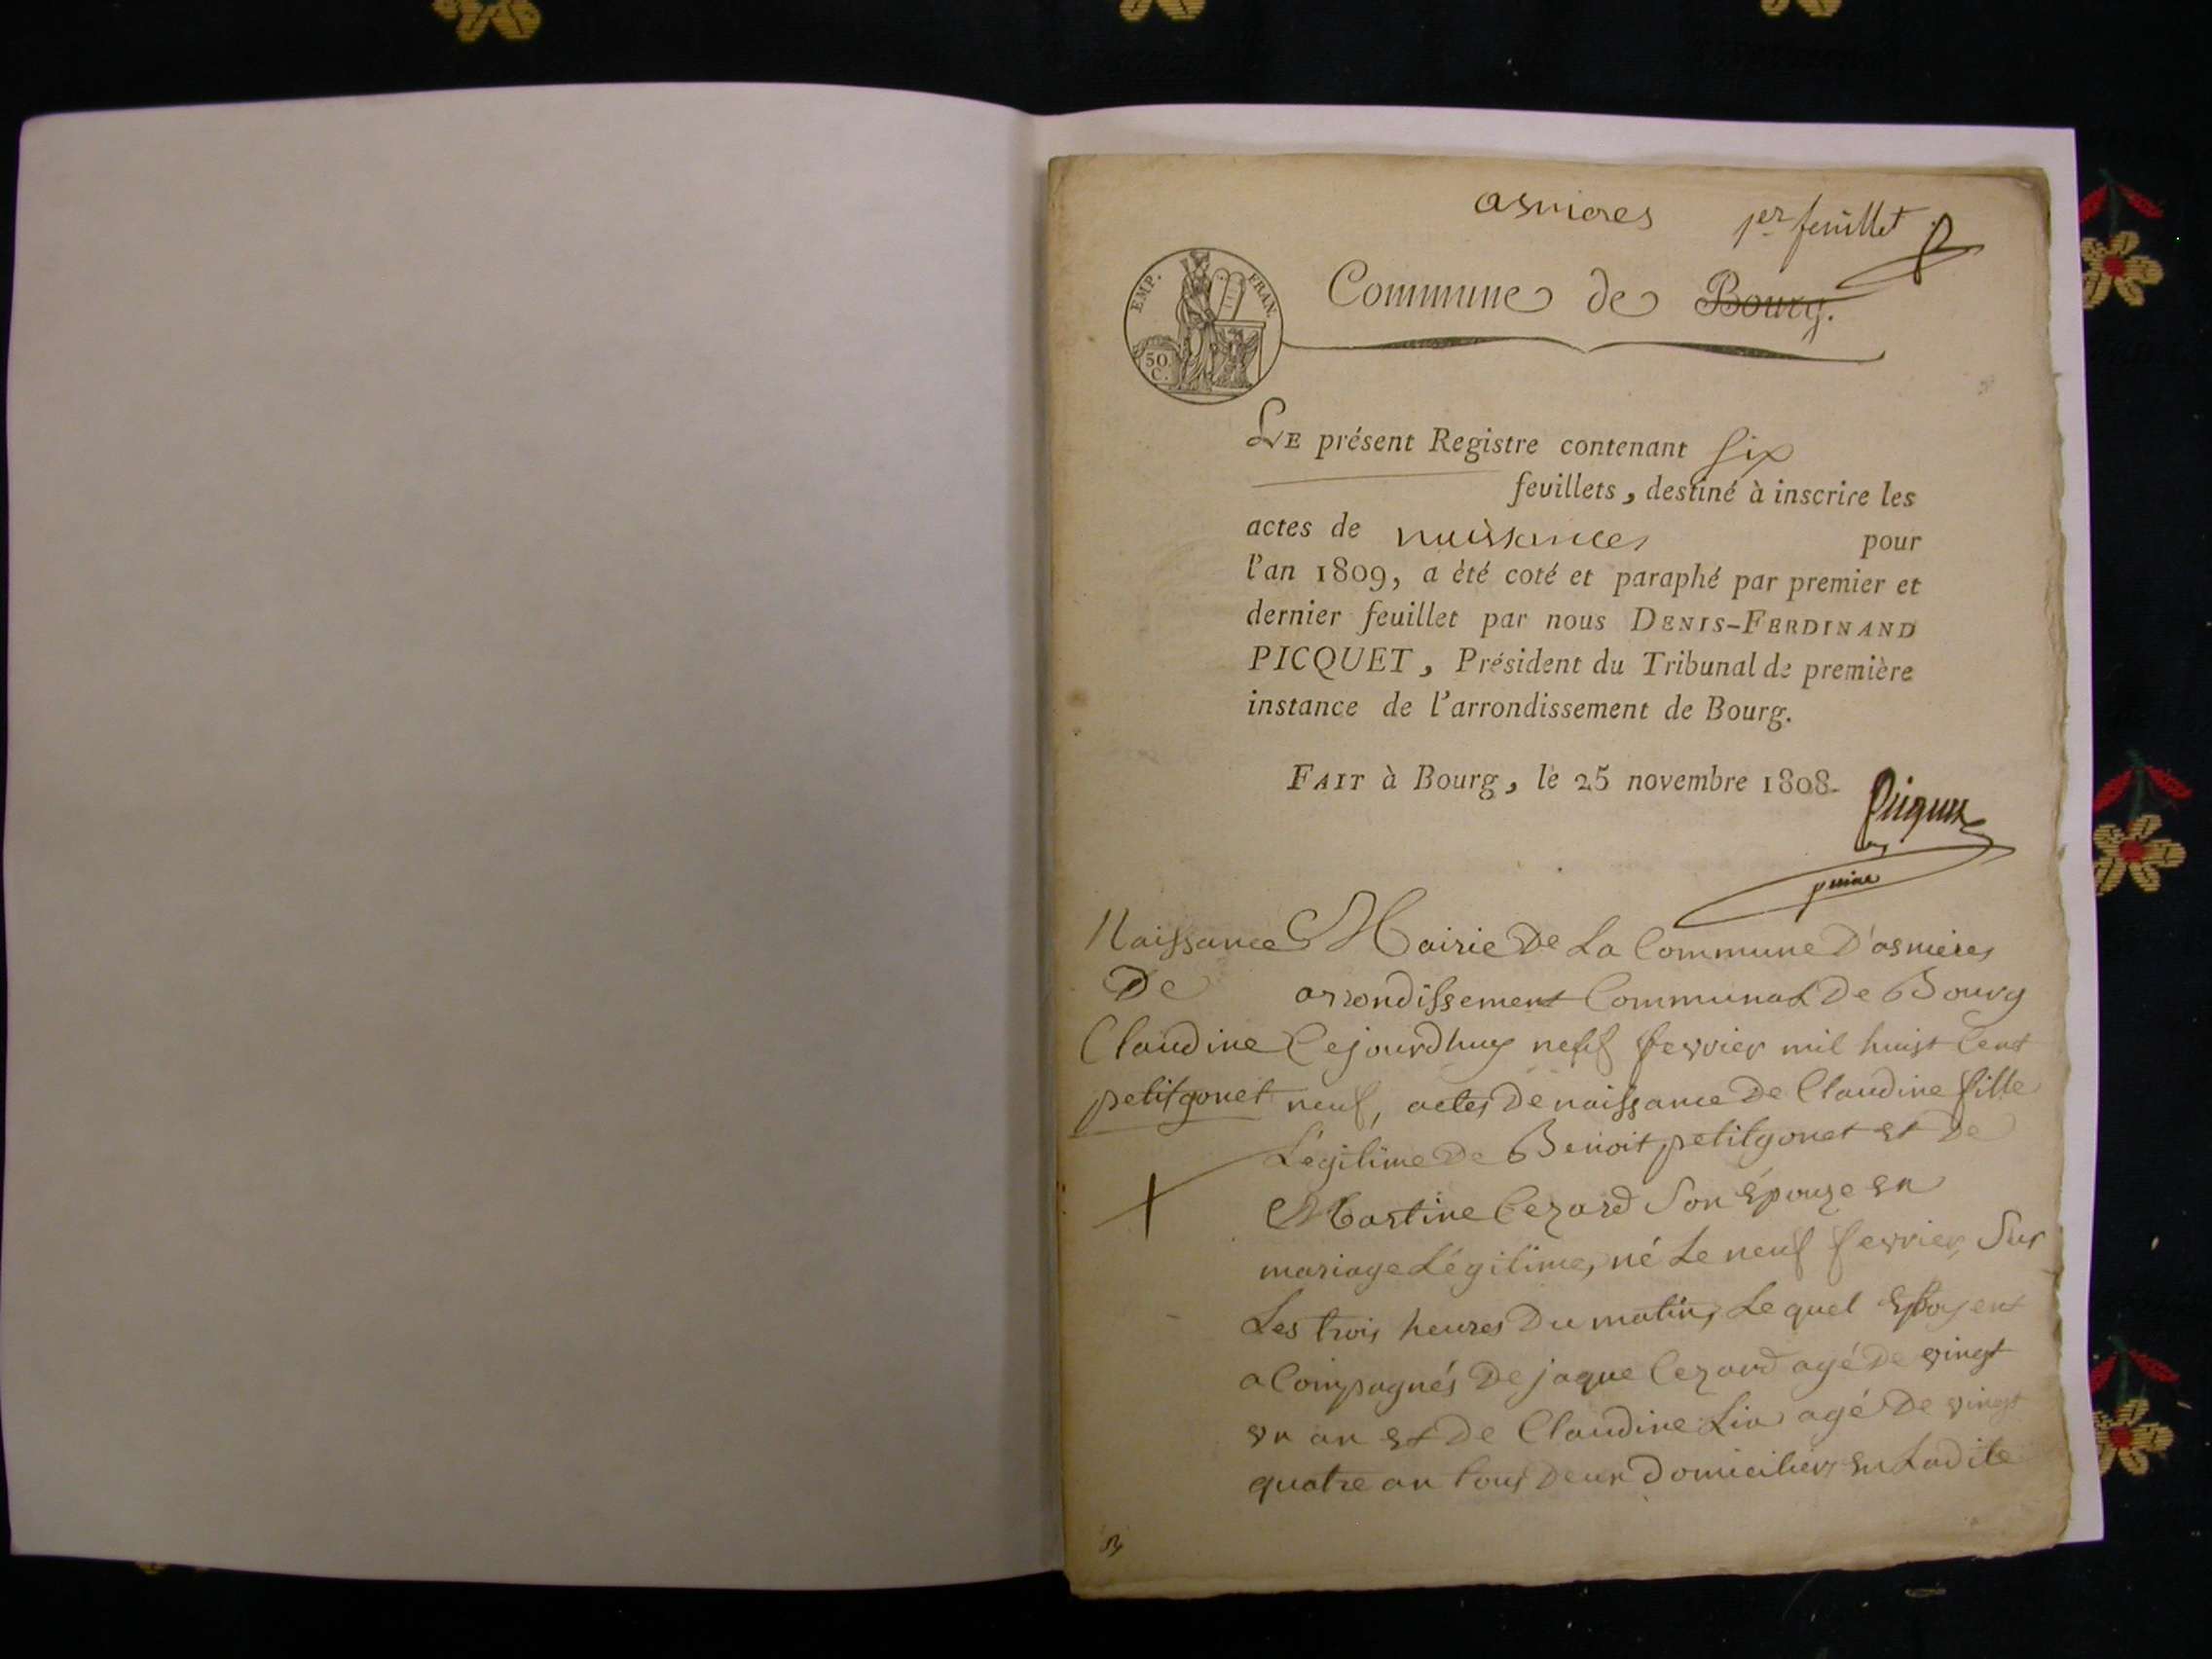 asnieres 1er feuillet
EMP. FRAN.
50 C.
Commune de Bourg.
LE présent Registre contenant six
feuillets, destiné à inscrire les
actes de naissances pour
l'an 1809, a été coté et paraphé par premier et
dernier feuillet par nous DENIS-FERDINAND
PICQUET, Président du Tribunal de première
instance de l'arrondissement de Bourg.
FAIT à Bourg, le 25 novembre 1808.
Picquet
Naissance
De
Claudine
petitgonet
Mairie De La Commune D'asnieres
arrondissement Communal De Bourg
Cejourdhuy neuf fevrier mil huist Cent
neuf, actes De naissance De Claudine fille
Légitime De Benoit petitgonet et De
Martine Cezard Son épouze en
mariage Légitime, né Le neuf fevrier, Sur
Les trois heures Du matin, Le quel
acompagnés De jaque Cezard agé De vingt
un an et De Claudine agé De vingt
quatre an tous Deux Domiciliers en Ladite